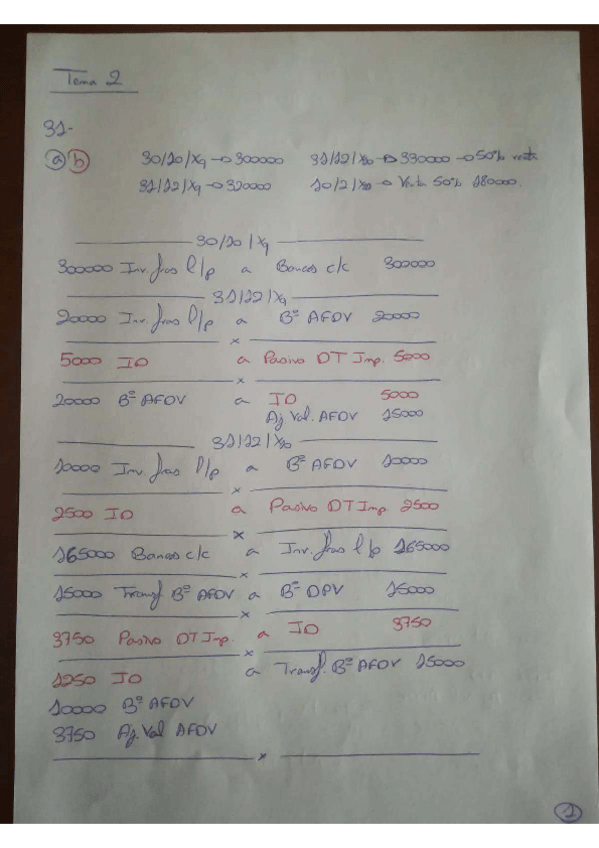 Tema 2
31-
a b 30/10/X9 → 300000 31/12/X10 → 330000 → 50% venta
31/12/X9 → 320000 10/1/X10 → Venta 50% 180000.
30/10/X9
300000 Inv. fras l/p a Bancos c/c 300000
31/12/X9
20000 Inv. fras l/p a Bº AFDV 20000
x
5000 ID a Pasivo DT Imp. 5000
x
20000 Bº AFDV a ID 5000
Aj. Val. AFDV 15000
31/12/X10
10000 Inv. fras l/p a Bº AFDV 10000
x
2500 ID a Pasivo DT Imp 2500
x
165000 Bancos c/c a Inv. fras l/p 165000
x
15000 Transf Bº AFDV a Bº DPV 15000
x
3750 Pasivo DT Imp. a ID 3750
x
1250 ID a Transf. Bº AFDV 15000
10000 Bº AFDV
3750 Aj. Val AFDV
x
1